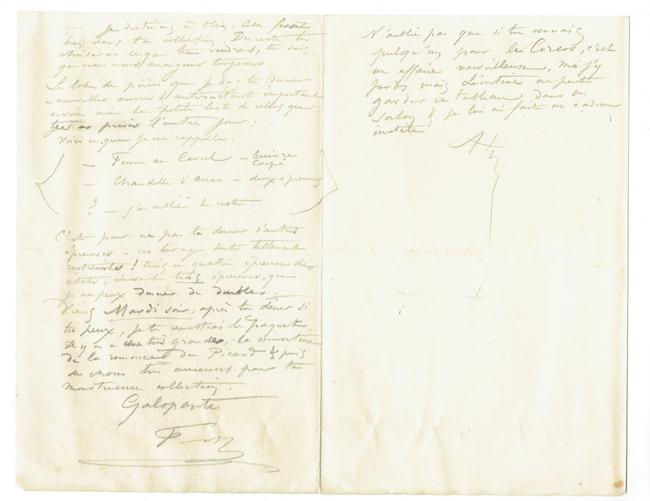 Je destinais à
bien dans ta collection. Du reste tu
choisiras ce que tu voudras, tu sais
que nous nous arrangeons toujours.
Le lot de pièces que je dois te donner
nouvelles
envoie moi la petite liste de celles que
tu as prises l'autre jour.
Voici ce que je me rappelle.
— Femme au — Cuivre
coupé
— Chandelle d' — deux épreuves
? — j'ai oublié le reste.
C'est pour ne pas te donner d'autres
épreuves — ces tirages sont tellement
restreints! trois ou quatre épreuves des
états, souvent trois épreuves, que
je ne peux donner de doubles.
Viens Mardi soir, après ton dîner si
tu peux, je te remettrai le paquet.
Il y en a une très grande, la couverture
de la de Picard & puis
des choses très curieuses pour ta
monstrueuse collection.
Galopante
N'oublie pas que si tu connais
quelqu'un pour le c'est
une affaire merveilleuse, moi j'y
perds mais ne peut
garder ce tableau dans un
salon & je lui ai fait un cadeau